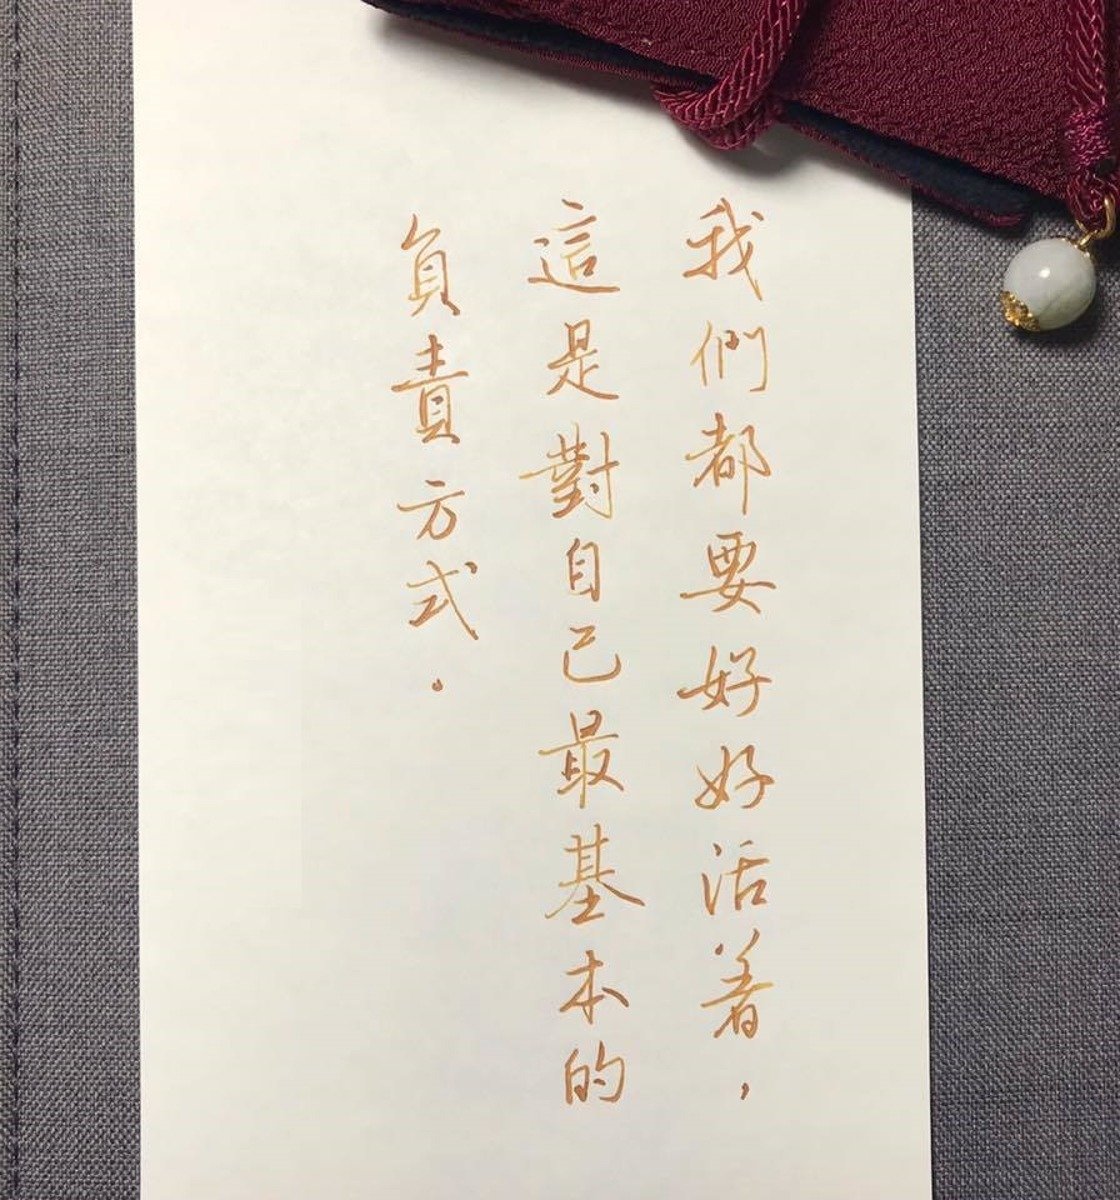 我們都要好好活着，
這是對自己最基本的
負責方式．